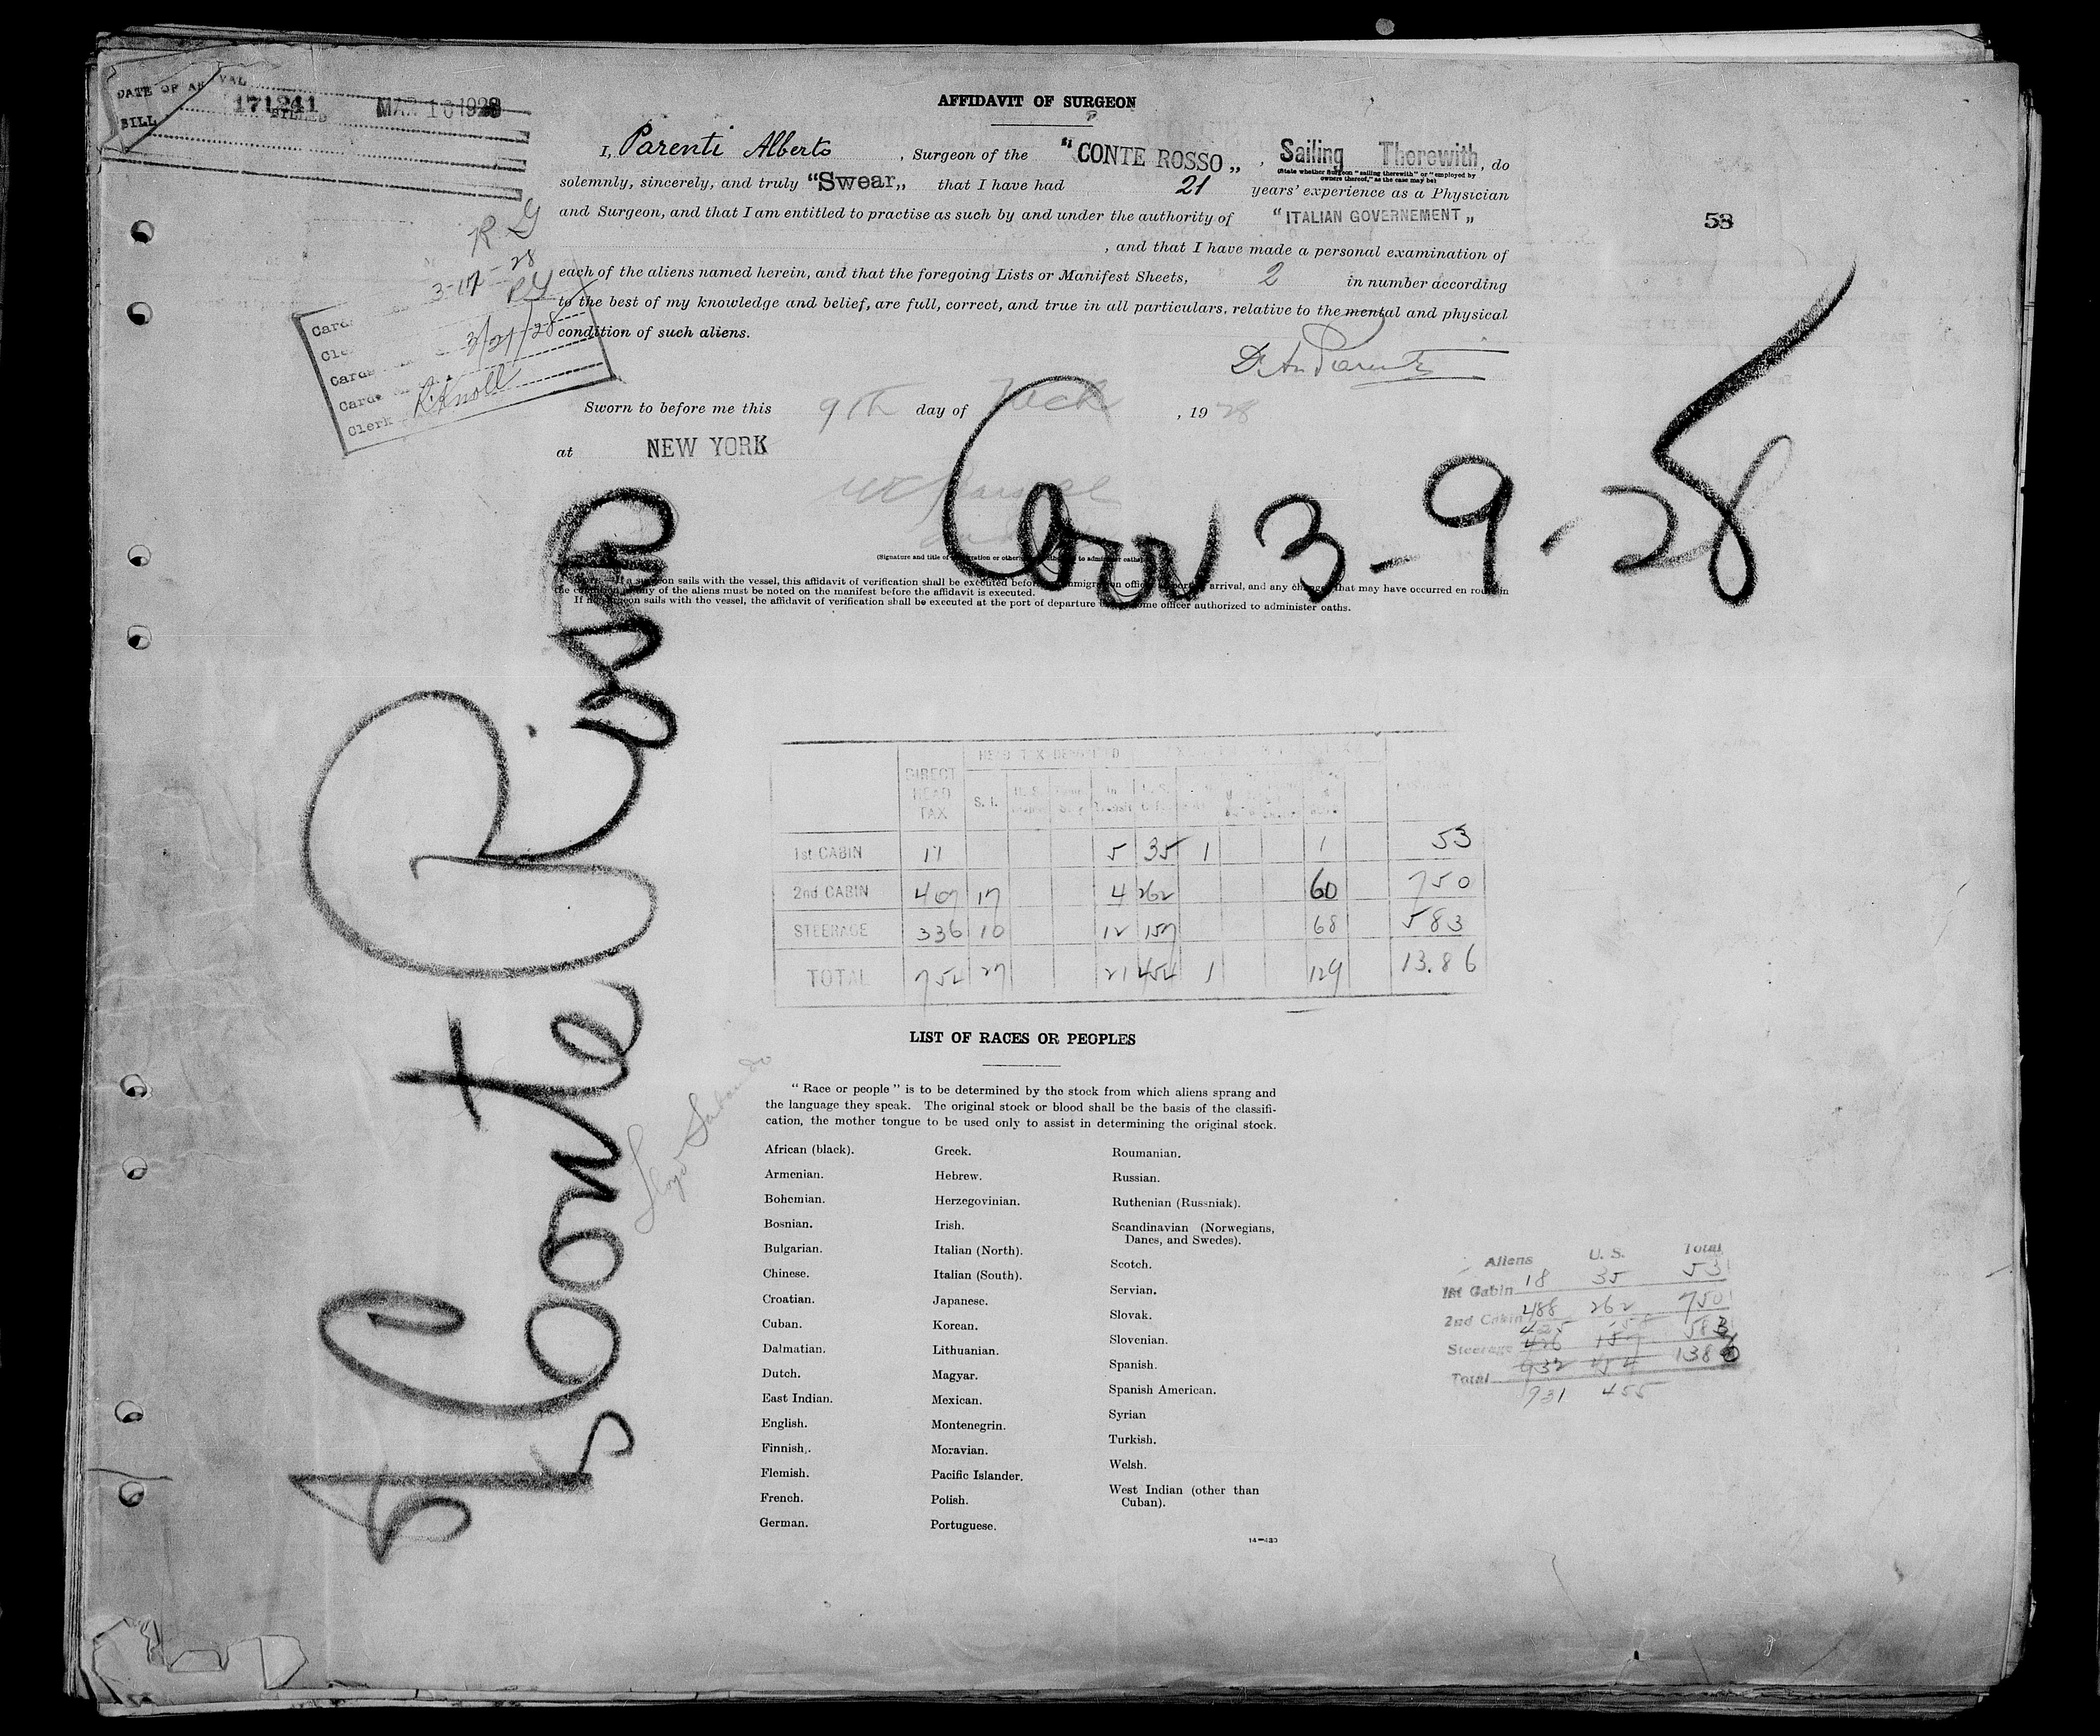 DATE OF ARRIVAL
171241 MAR 10 1928
BILL
AFFIDAVIT OF SURGEON
I, Parenti Alberto, Surgeon of the "CONTE ROSSO", Sailing Therewith, do
(State whether Surgeon "sailing therewith" or "employed by
owners thereof," as the case may be)
solemnly, sincerely, and truly "Swear" that I have had 21 years' experience as a Physician
and Surgeon, and that I am entitled to practise as such by and under the authority of "ITALIAN GOVERNEMENT"
53
, and that I have made a personal examination of
each of the aliens named herein, and that the foregoing Lists or Manifest Sheets, 2 in number according
to the best of my knowledge and belief, are full, correct, and true in all particulars, relative to the mental and physical
condition of such aliens.
R G
3-17-28
Cards
3/21/28
Cards
Cards
Clerk R. Knoll
Sworn to before me this 9th day of Mch, 1928
at NEW YORK
arr 3-9-28
(Signature and title of to administer oaths)
If a surgeon sails with the vessel, this affidavit of verification shall be executed before immigration officer port arrival, and any changes that may have occurred en route in
the condition of any of the aliens must be noted on the manifest before the affidavit is executed.
If no surgeon sails with the vessel, the affidavit of verification shall be executed at the port of departure some officer authorized to administer oaths.
SS Conte Rosso
Lloyd Sabaudo
HEAD TAX DEPOSITED
DIRECT HEAD TAX S. I. In Transit U. S.
1st CABIN 17 5 35 1 1 53
2nd CABIN 407 17 4 262 60 750
STEERAGE 336 10 12 157 68 583
TOTAL 754 27 21 454 1 129 13.86
LIST OF RACES OR PEOPLES
"Race or people" is to be determined by the stock from which aliens sprang and
the language they speak. The original stock or blood shall be the basis of the classifi-
cation, the mother tongue to be used only to assist in determining the original stock.
African (black).
Armenian.
Bohemian.
Bosnian.
Bulgarian.
Chinese.
Croatian.
Cuban.
Dalmatian.
Dutch.
East Indian.
English.
Finnish.
Flemish.
French.
German.
Greek.
Hebrew.
Herzegovinian.
Irish.
Italian (North).
Italian (South).
Japanese.
Korean.
Lithuanian.
Magyar.
Mexican.
Montenegrin.
Moravian.
Pacific Islander.
Polish.
Portuguese.
Roumanian.
Russian.
Ruthenian (Russniak).
Scandinavian (Norwegians,
Danes, and Swedes).
Scotch.
Servian.
Slovak.
Slovenian.
Spanish.
Spanish American.
Syrian
Turkish.
Welsh.
West Indian (other than
Cuban).
14-430
Aliens U. S. Total
1st Cabin 18 35 53
2nd Cabin 488 262 750
425 158 583
Steerage 426 157
932 454 1386
Total 931 455